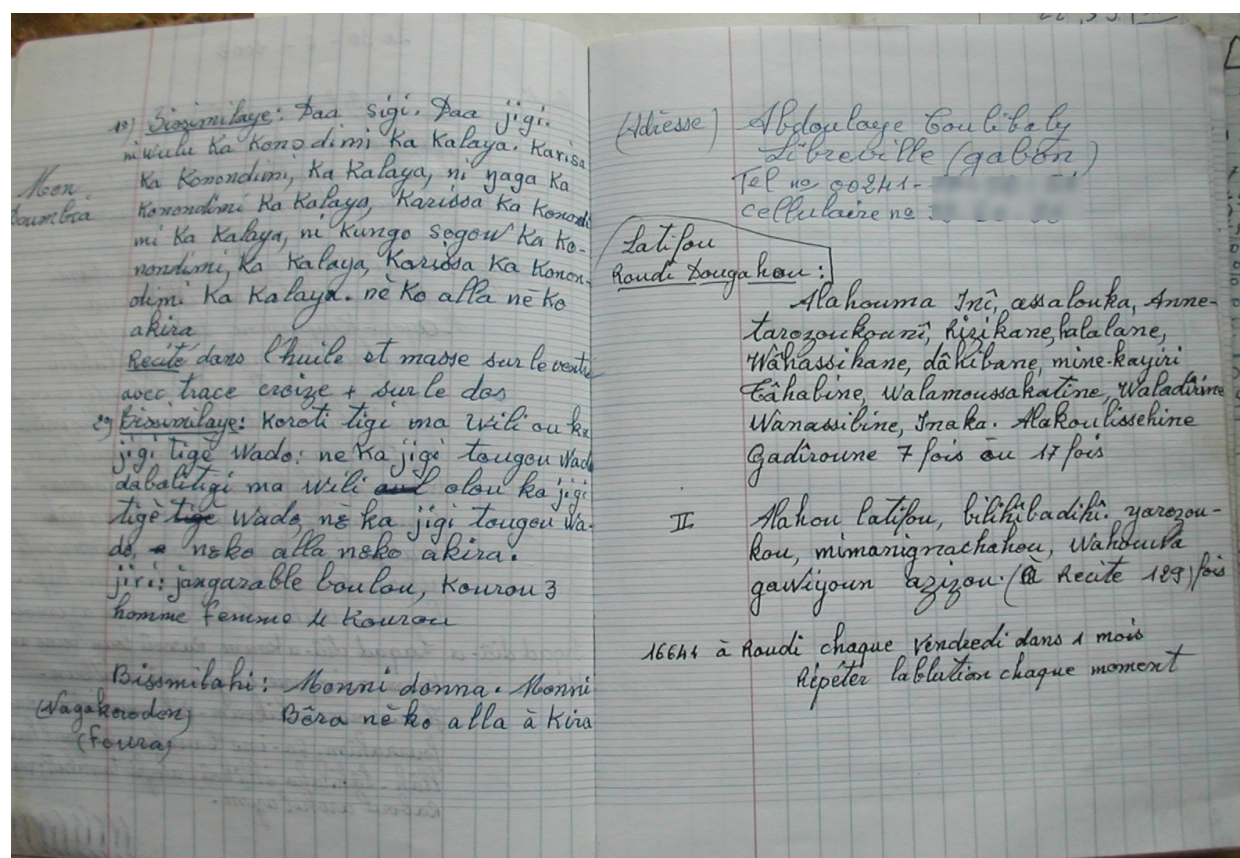 1º) Bissimilaye: Daa sigi. Daa jigi.
ni wulu Ka Konodimi Ka Kalaya. Karisa
Ka Konondimi, Ka Kalaya, ni yaga Ka
Konondimi Ka Kalaya, Karissa Ka Konondi
mi Ka Kalaya, ni Kungo sogow Ka Ko-
nondimi, Ka Kalaya, Karissa Ka Konon-
dimi Ka Kalaya. nè Ko alla nè Ko
akira
Recité dans l'huile et masse sur le ventre
avec trace croize + sur le dos
Mon
Doumbia
2º) Bissimilaye: Koroti tigi ma wili ou ka
jigi tigè Wado: ne Ka jigi tougou Wado
dabalitigi ma wili olou ka jigi
tigè tigè Wado, nè ka jigi tougou Wa-
do, nɛko alla nɛko akira.
jiri: jangarable boulou, Kourou 3
homme femme 4 Kourou
Bissmilahi: Monni donna. Monni
(Nagakorodon) Bôra nè ko alla à Kira
(foura)
(Adresse) Abdoulaye Coulibaly
Libreville (gabon)
Tel nº 00241-
cellulaire nº
Latifou
Raudi Dougahou:
Alahouma Inî, assalouka, Anne-
tarozoukounî, Rizikane, halalane,
Wâhassihane, dâhibane, mine-kayiri
Tâhabine, Walamoussakatine, Waladîrine
Wanassibine, Inaka. Alakoulissehine
Gadîroune 7 fois ou 17 fois
II Alahou latifou, bilihîbadihî. yarozou-
kou, mimanignachahou, Wahouwa
gawiyoun azizou. (à Recite 129) fois
16641 à Raudi chaque Vendredi dans 1 mois
Répéter lablution chaque moment